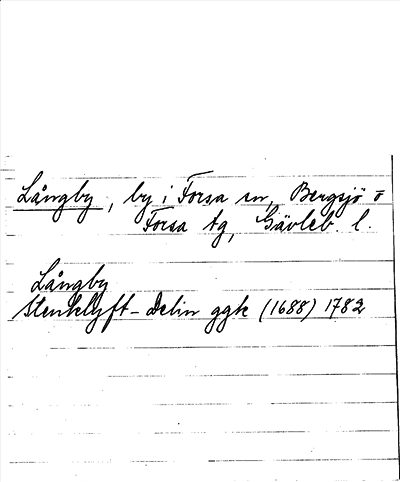 Långby, by i Forsa sn, Bergsjö o
Forsa tg, Gävleb. l.
Långby
Stenklyft- Delin ggk (1688) 1782